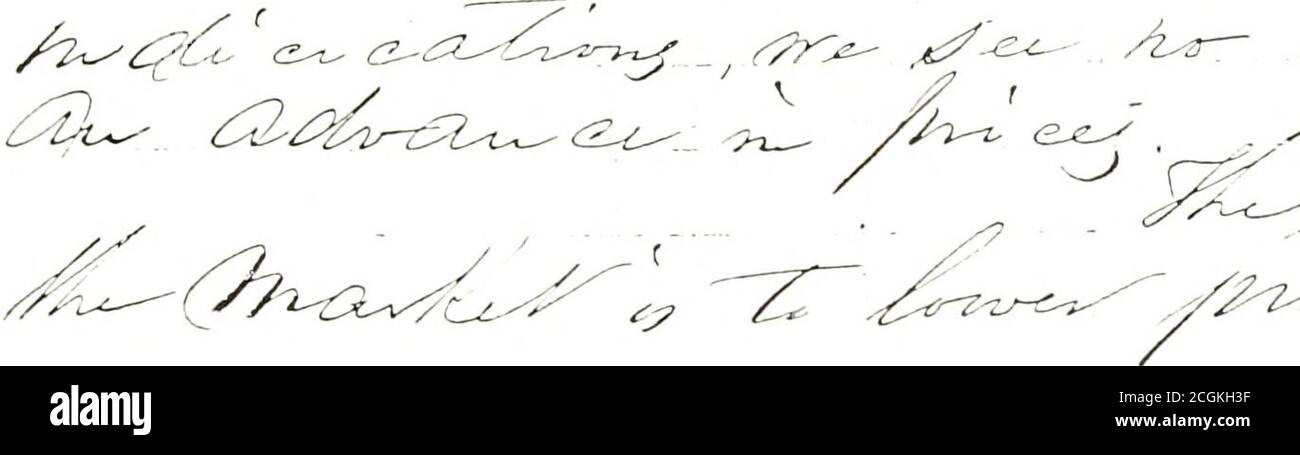 indications, we see no
an advance in prices.
The
the Market is to lower pr
alamy
Image ID: 2CGKH3F
www.alamy.com